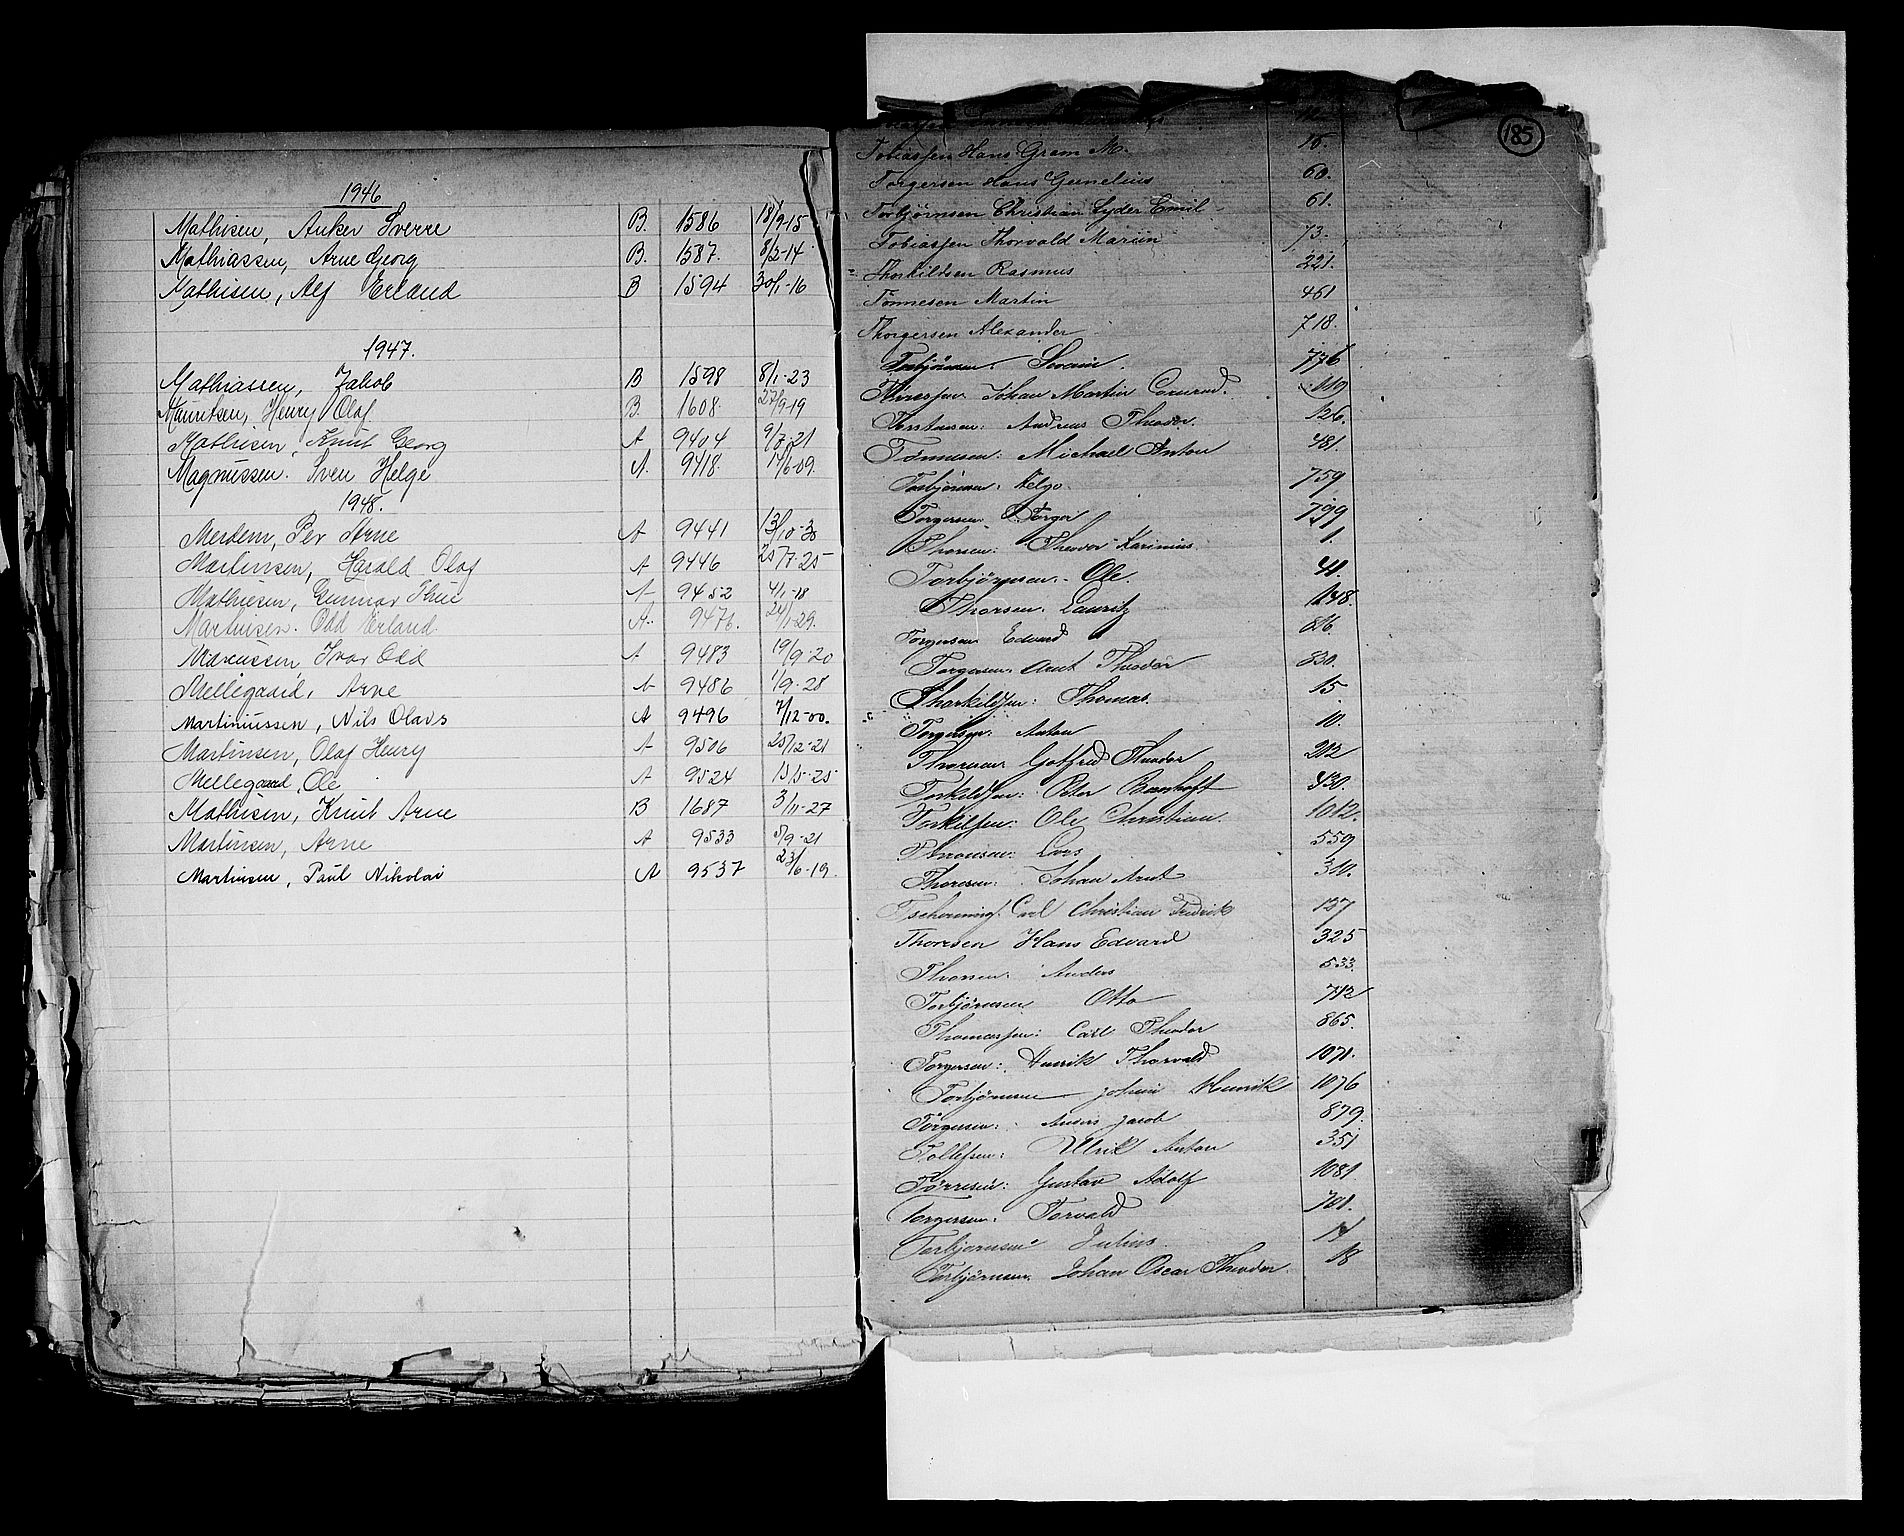 1946
Mathisen, Anker Sverre B. 1586 18/9-15
Mathiassen, Arne Georg B. 1587. 8/2-14
Mathisen, Alf Erland B 1594 30/1-16
1947.
Mathiassen, Jakob B 1598 8/1-23
Mauritsen, Henry Olaf B. 1608. 27/9-19
Mathisen, Knut Georg A 9404 9/7-21
Magnussen. Sven Helge A. 9418. /6-09.
1948.
Merdem, Per Arne A 9441 13/10-30
Martinsen, Harald Olaf A 9446 25/7-25
Mathiesen, Gunnar Thue A 9452 4/1-18
Martinsen. Odd Erland A. 9476. 24/1-29.
Marcussen, Ivar Odd A 9483 19/9-20
Mellegaard, Arne A 9486 1/9-28
Martiniussen, Nils Olavs A 9496 7/12-00.
Martinsen, Olaf Henry A 9506 25/12-21
Mellegaard, Ole A 9524 15/5-25
Mathisen, Knut Arne B 1687 3/11-27
Martinsen, Arne A 9533 5/9-21
Martinsen, Paul Nikolai A 9537 23/6-19.
185
Tobiassen Hans Gram M. 15.
Torgersen Hans Gernelius 60.
Torbjørnsen Christian Lyder Emil 61.
Tobiassen Thorvald Mariin 73.
Thorkildsen Rasmus 221.
Tønnesen Martin 461
Thorgersen Alexander 718.
Torbjörnsen. 776
Johan Martin Conrad. 119
Torstensen: Andreas Theodor. 126.
Tönnesen: Michael Anton 481.
Torbjörnsen. Helge. 759
Torgersen Torger 799
Thorsen: Theodor Karinius 1
Torbjörnsen. Ole. 41.
Thorsen. Lauritz 148.
Torgersen Edvard
Torgersen. Arnt Theodor 830.
Thorkildsen: Thomas. 15
Torgersen: Anton 10.
Gotfred Theodor 212
Torkildsen: Peter 430.
Torkilsen: Ole Christian. 1012.
Lars 559
Thoresen: Johan Arnt 310.
Tschering. Carl Christian Fredrik 137
Thoresen Hans Edvard 325
Thorsen: Anders 533.
Torbjörnsen Otto 712
Thomassen: Carl Theodor 865.
Torgersen: Henrik Thorvald 1071.
Torbjörnsen Johan Henrik 1076
Torgersen: Anders Jacob 879.
Tollefsen: Ulrik Anton 351
Törresen: Gustav Adolf 1081
Torgersen: Torvald 701.
Torbjörnsen Julius. 14
Torbjörnsen. Johan Oscar Theodor. 18